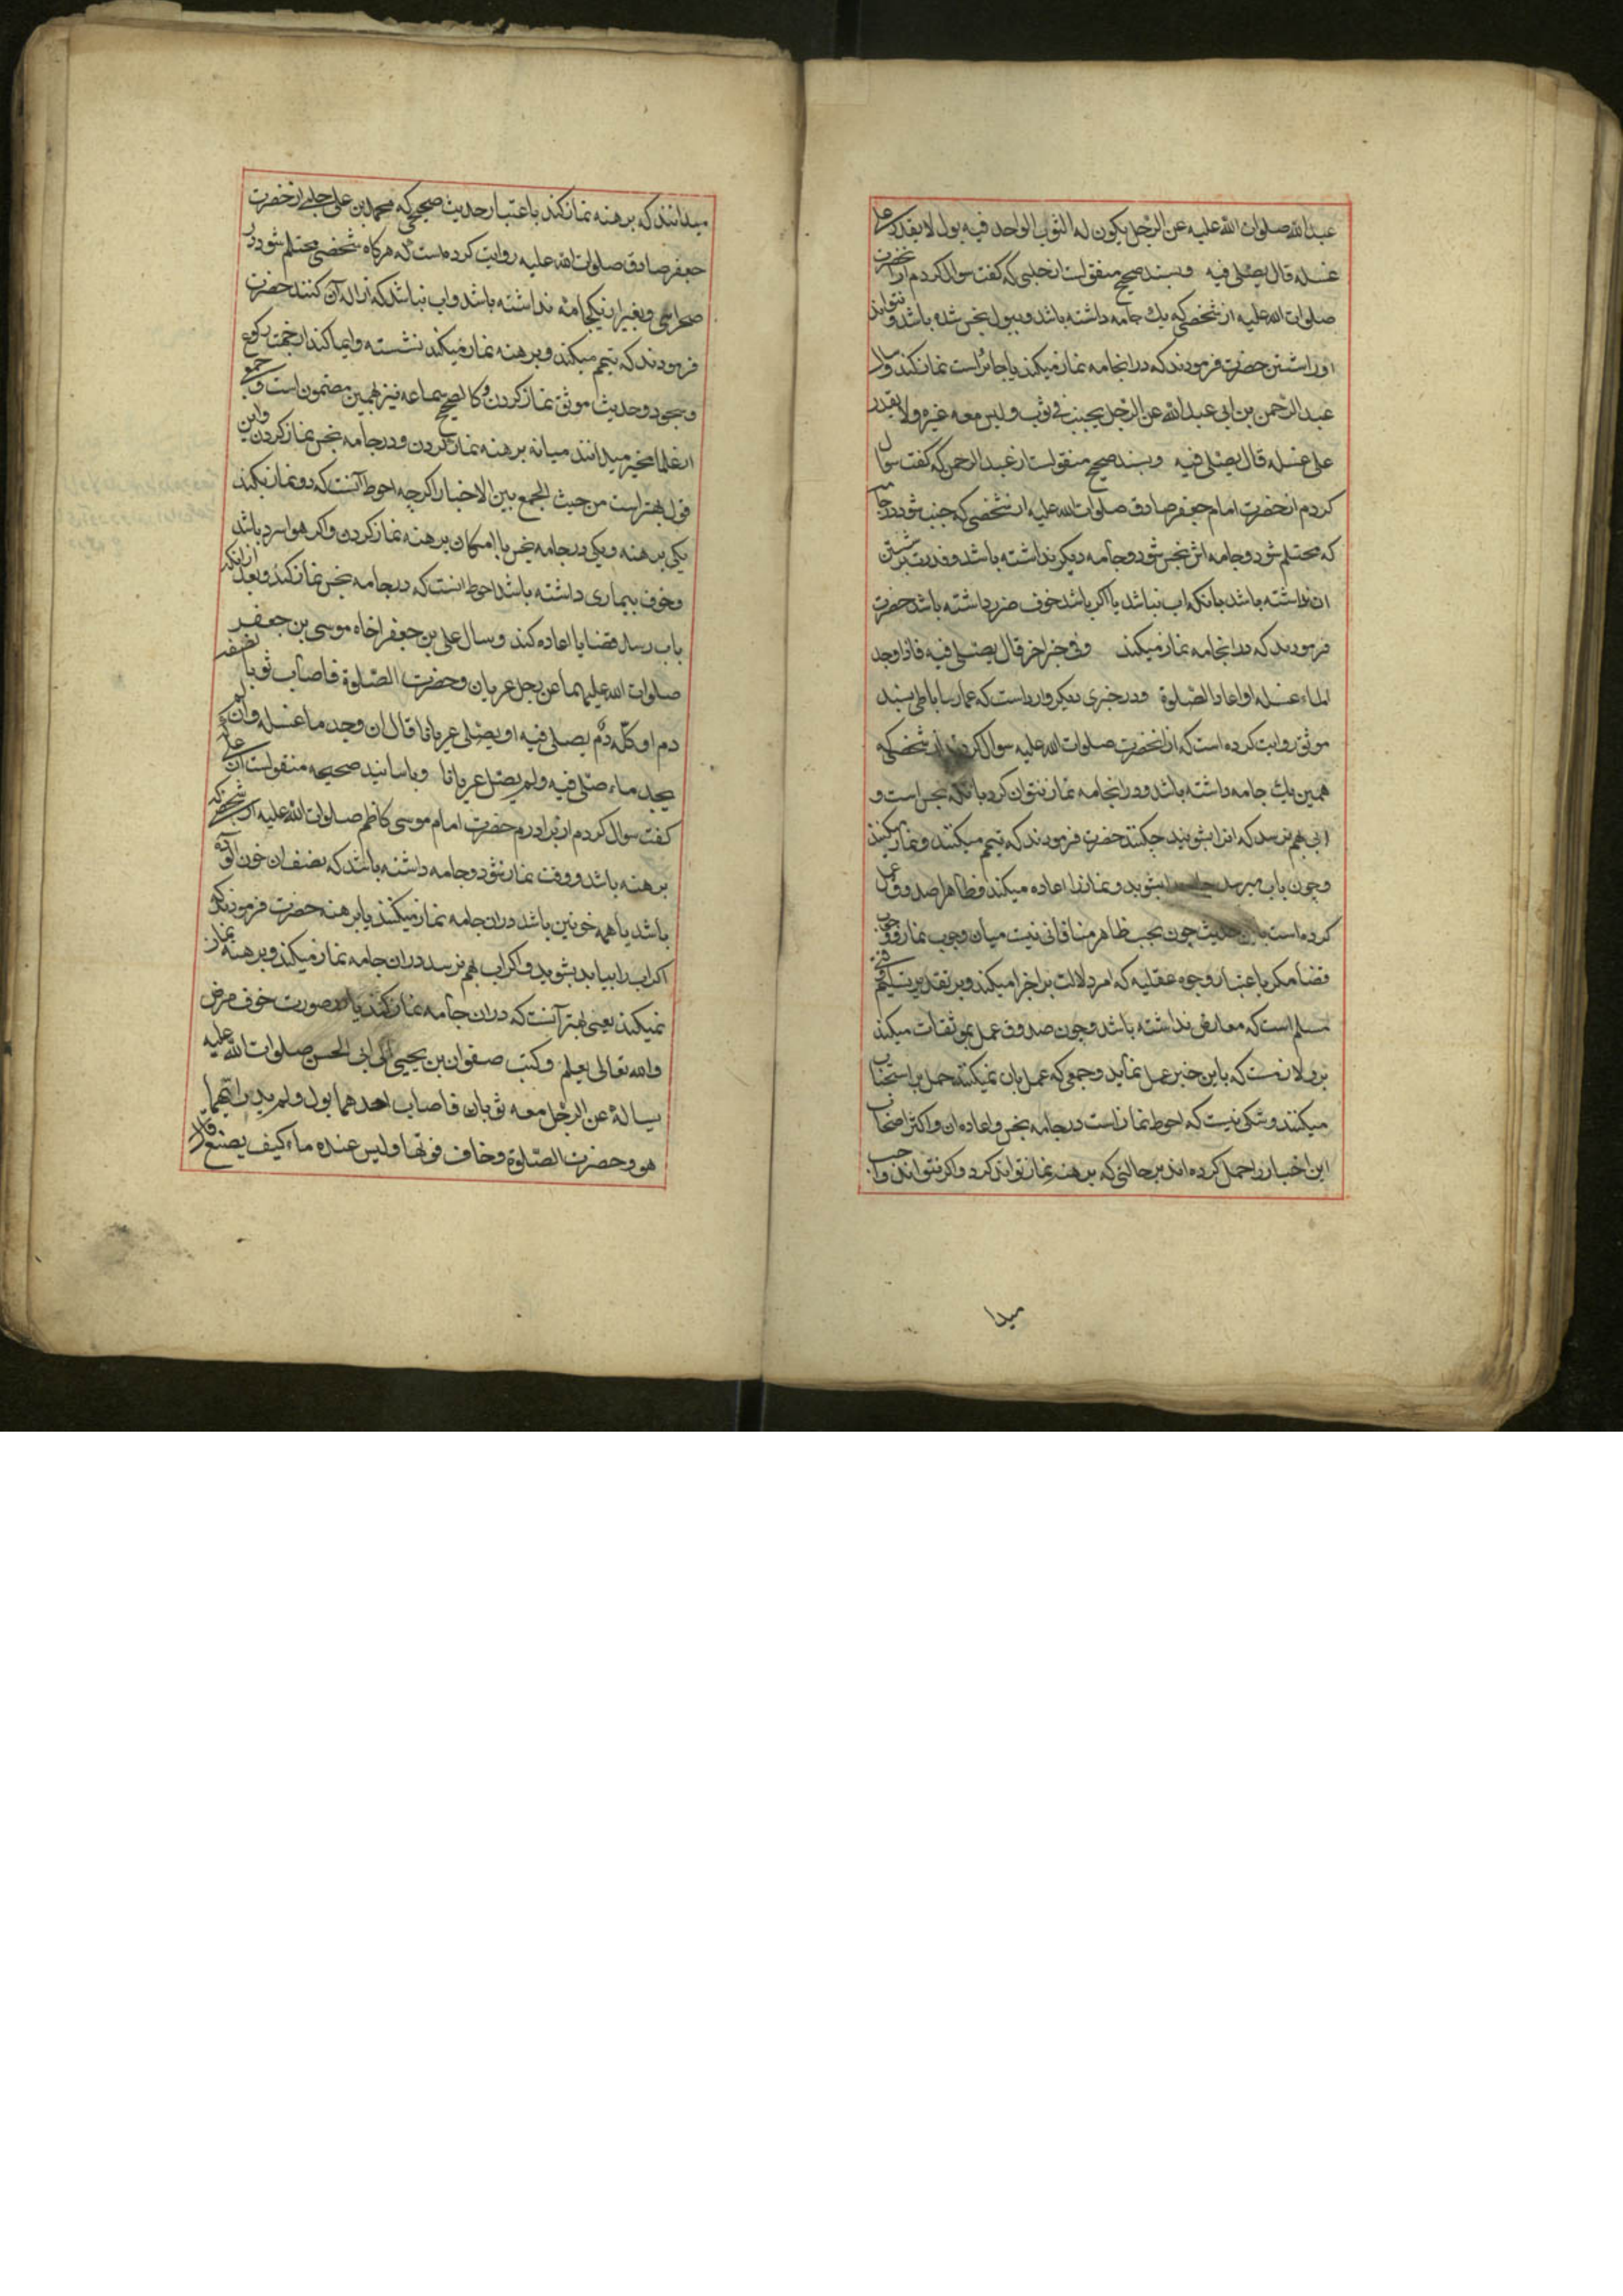 عبدالله صلوات الله عليه عن الرّجل يكون له الثوب الواحد فيه بول لا يقدر على
غسله قال يصلّى فيه وبسند صحيح منقولست از حلبى كه كفت سوال كردم از انحضرت
صلوات الله عليه از شخصى كه يك جامه داشته باشد و ببول نجس شده باشد و نتواند
اورا شستن حضرت فرمودند كه در انجامه نماز ميكند يا جايز است نماز كند وسال
عبد الرّحمن بن ابى عبد الله عن الرّجل يجنب فى ثوب وليس معه غيره ولا يقدر
على غسله قال يصلّى فيه وبسند صحيح منقولست از عبد الرحمن كه كفت سوال
كردم از حضرت امام جعفر صادق صلوات الله عليه از شخصى كه جنب شود در جامه
كه محتلم شود و جامه اش نجس شود و جامه ديكر نداشته باشد و قدرت بر شستن
ان نداشته باشد بانكه اب نباشد يا اكر باشد خوف ضرر داشته باشد حضرت
فرمودند كه در انجامه نماز ميكند وفى خبر اخر قال يصلّى فيه فاذا وجد
الماء غسله واعاد الصّلوة و در خبرى ديكر وارد است كه عمار ساباطى بسند
موثق روايت كرده است كه از انحضرت صلوات الله عليه سوال كردند از شخصى كه
همين يك جامه داشته باشد و در انجامه نماز نتوان كرد بانكه نجس است و
ابى بهم نرسد كه انرا بشويند چكنند حضرت فرمودند كه تيمم ميكنند و نماز ميكنند
و چون باب ميرسد جامه را بشويد و نماز را اعاده ميكند و ظاهرا صدوق عمل
كرده است باين حديث چون بحسب ظاهر منافاتى نيست ميان وجوب نماز و وجوب
قضا مكر باعتبار وجوه عقليه كه امر دلالت بر اجزا ميكند و بر تقدير تسليم وقتى
مسلم است كه معارض نداشته باشد و چون صدوق عمل بموثقات ميكند
برو لازمست كه باين خبر عمل نمايد و جمعى كه عمل بان نميكنند حمل بر استحباب
ميكنند و شكى نيست كه احوط نماز است در جامه نجس و اعاده ان و اكثر اصحاب
اين اخبار را حمل كرده اند بر حالتى كه برهنه نماز نتواند كرد و اكر نتواند واجب
ميدا
ميدانند كه برهنه نماز كند باعتبار حديث صحيحى كه محمد بن على حلبى از حضرت
جعفر صادق صلوات الله عليه روايت كرده است كه هركاه شخصى محتلم شود در
صحرايى و بغير از يكجامه نداشته باشد و اب نباشد كه ازاله آن كنند حضرت
فرمودند كه تيمم ميكند و برهنه نماز ميكند نشسته و ايما كند از جهت ركوع
و سجود و حديث موثق نماز كردن و كالصحيح سماعه نيز بهمين مضمون است و جمعى
از علما مخير ميدانند ميانه برهنه نماز كردن و در جامه نجس نماز كردن و اين
قول بهتر است من حيث الجمع بين الاخبار اكرچه احوط آنست كه دو نماز بكند
يكى برهنه و يكى در جامه نجس با امكان برهنه نماز كردن و اكر هوا سرد باشد
و خوف بيمارى داشته باشد احوط انست كه در جامه نجس نماز كند و بعد از انكه
باب رسد قضا يا اعاده كند وسال على بن جعفر اخاه موسى بن جعفر
صلوات الله عليهما عن رجل عريان وحضرت الصّلوة فاصاب ثوبا نصفه
دم او كلّه دم يصلى فيه او يصلّى عريانا قال ان وجد ماء غسله وان لم
يجد ماء صلّى فيه ولم يصلّ عريانا و باسانيد صحيحه منقولست از على كه
كفت سوال كردم از برادرم حضرت امام موسى كاظم صلوات الله عليه از شخصى كه
برهنه باشد و وقت نماز شود و جامه داشته باشد كه نصف ان خون آلوده
باشد يا همه خونين باشد در ان جامه نماز ميكند يا برهنه حضرت فرمودند كه
اكر اب را بيابد بشويد و اكر اب بهم نرسد در ان جامه نماز ميكند و برهنه نماز
نميكند يعنى بهتر آنست كه در ان جامه نماز كند يا در صورت خوف مرض
والله تعالى يعلم وكتب صفوان بن يحيى الى ابى الحسن صلوات الله عليه
يساله عن الرجل معه ثوبان فاصاب احدهما بول ولم يدر ايّهما
هو وحضرت الصّلوة وخاف فوتها وليس عنده ماء كيف يصنع قال